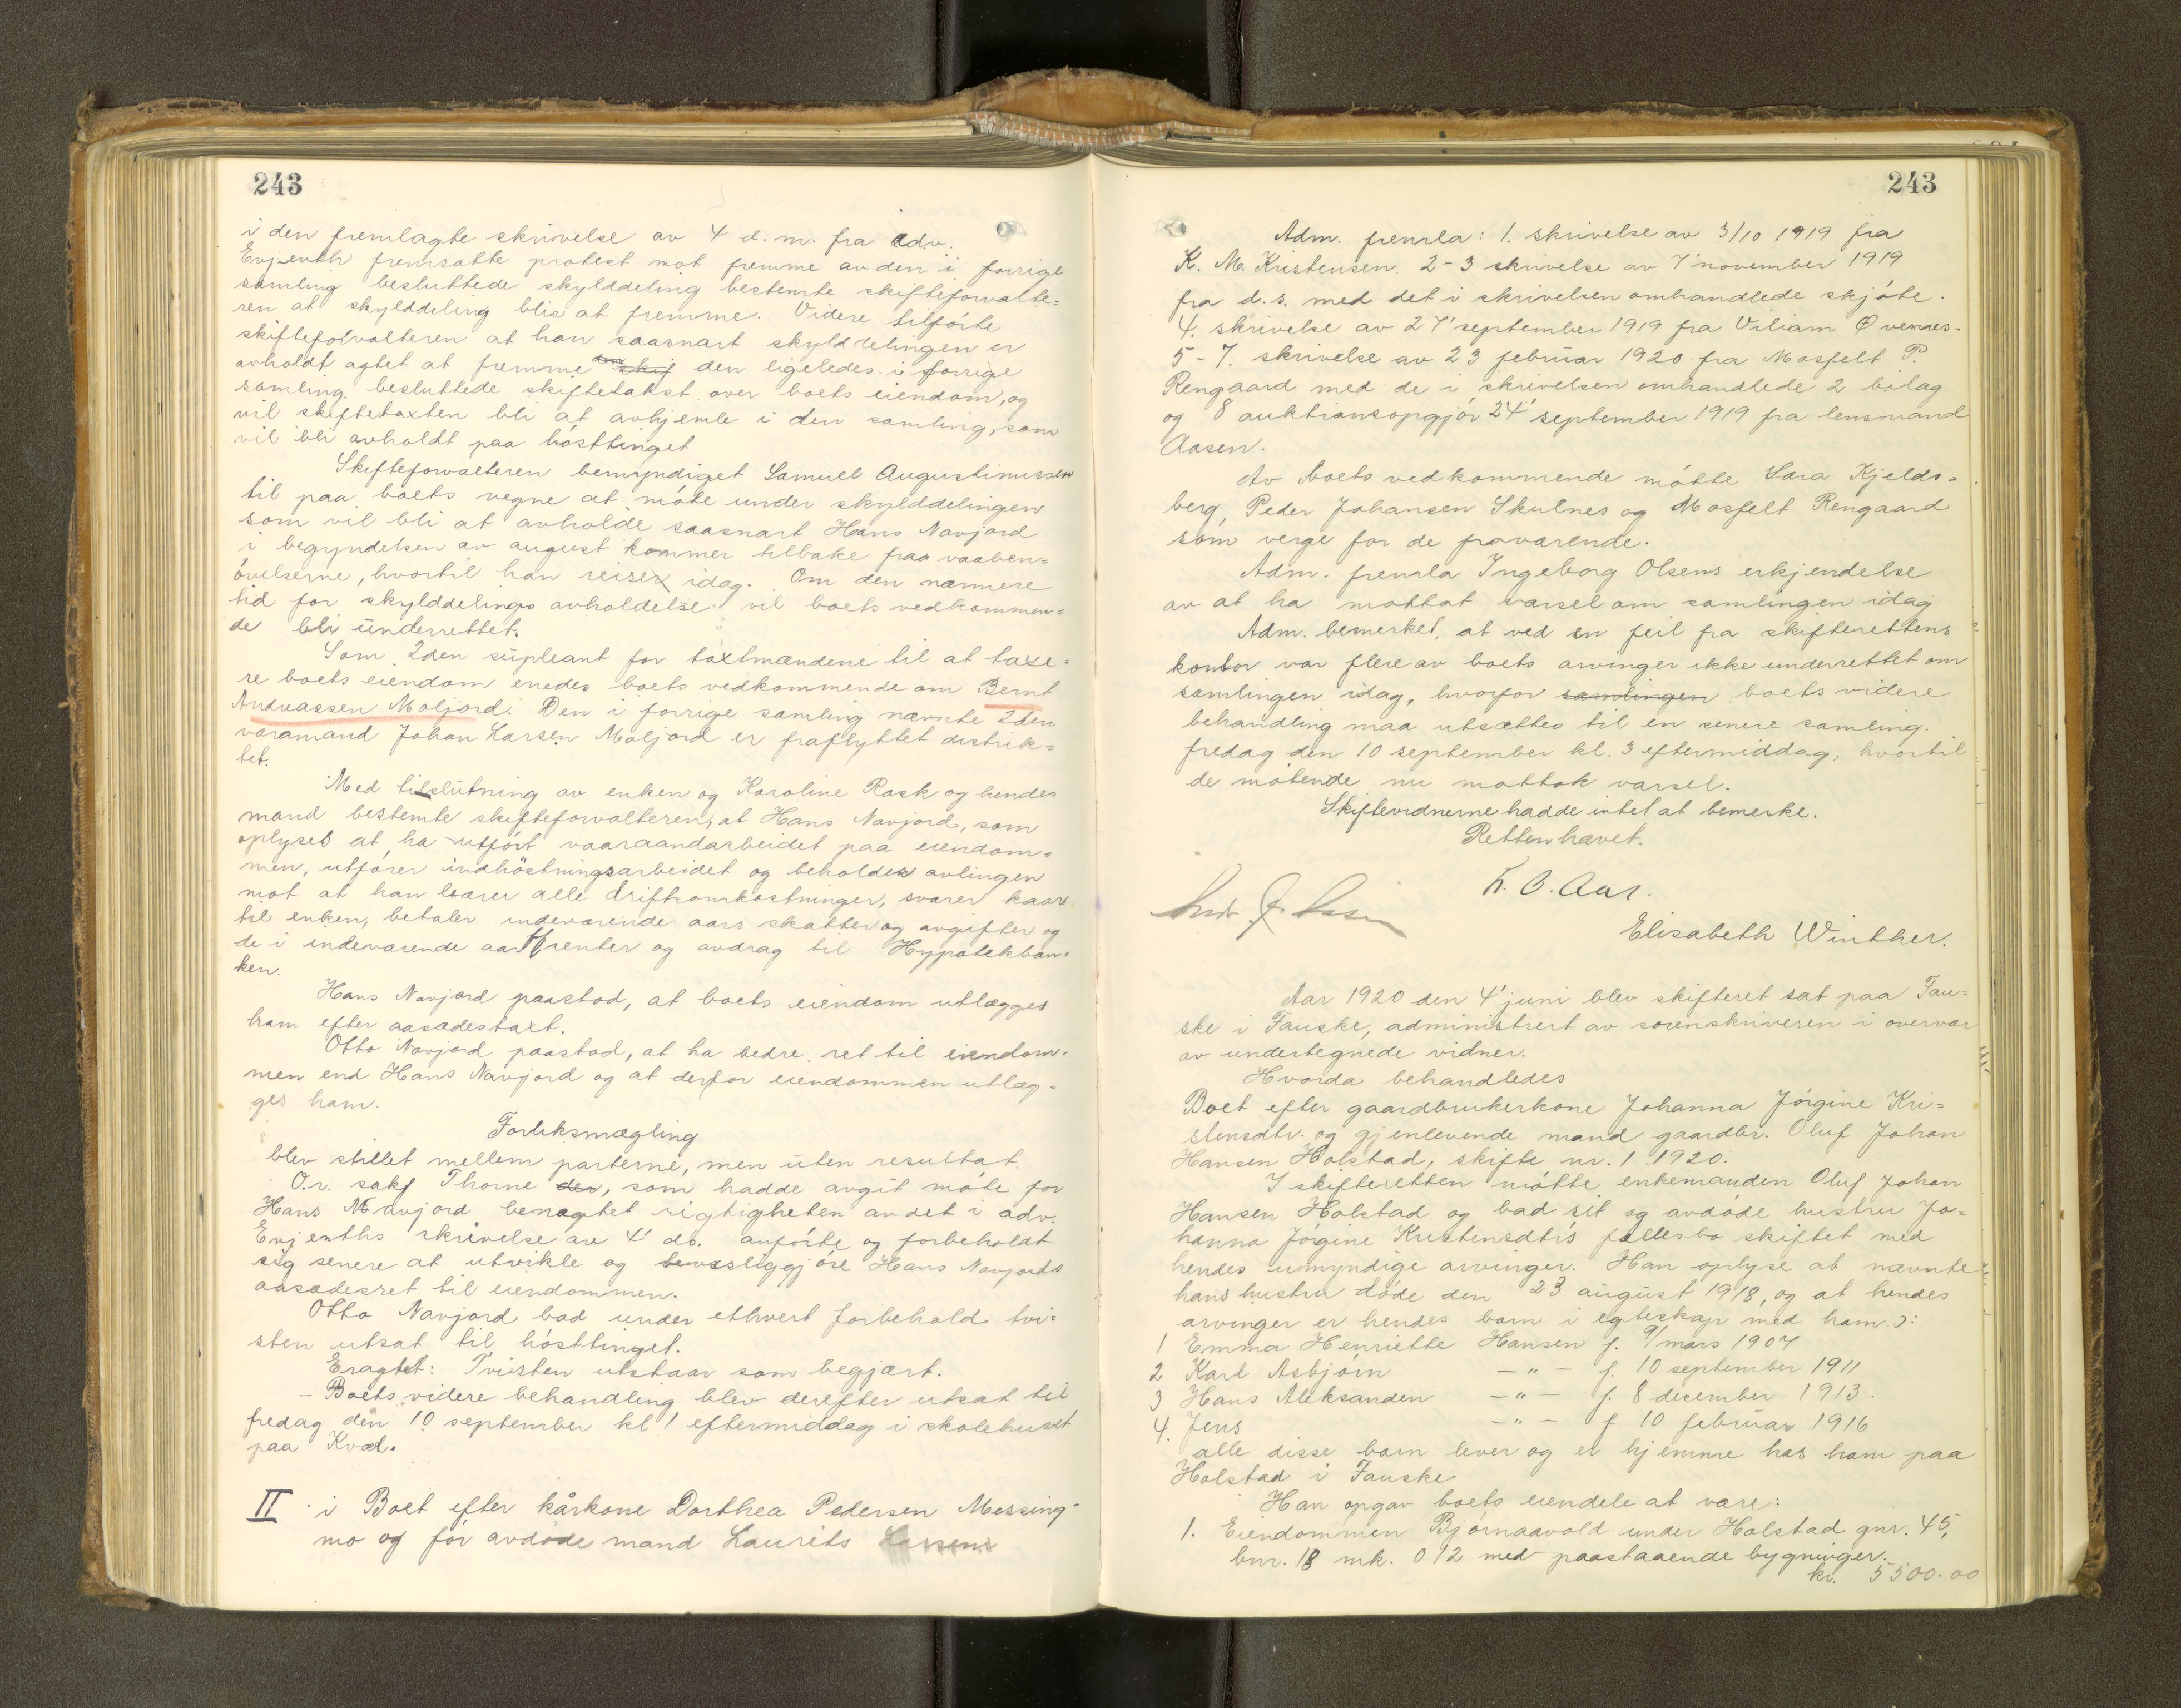 243
i den fremlagte skrivelse av 4 d.m. fra adv.
Evjenth fremsatte protest mot fremme av den i forrige
samling besluttede skylddeling bestemte skifteforvalte=
ren at skylddeling blir at fremme. Videre tilførte
skifteforvalteren at han saasnart skylddelingen er
avholdt agtet at fremme den skif den ligeledes i forrige
samling besluttede skiftetakst over boets eiendom, og
vil skiftetaxten bli at avhjemle i den samling, som
vil bli avholdt paa høsttinget
Skifteforvalteren bemyndiget Samuel Augustinussen
til paa boets vegne at møte under skylddelingen
som vil bli at avholde saasnart Hans Navjord
i begyndelsen av august kommer tilbake fra vaaben=
øvelserne, hvortil han reiser idag. Om den nærmere
tid for skylddelings avholdelse vil boets vedkommen=
de bli underrettet.
Som 2den supleant for taxtmændene til at taxe=
re boets eiendom enedes boets vedkommende om Bernt
Andreassen Moljord. Den i forrige samling nævnte 2den
varamand Johan Larsen Moljord er fraflyttet distrik=
tet.
Med tilslutning av enken og Karoline Rask og hendes
mand bestemte skifteforvalteren, at Hans Navjord, som
oplyses at ha utført vaaraandarbeidet paa eiendom=
men, utfører indhøstningsarbeidet og beholder avlingen
mot at han bærer alle driftsomkostninger, svarer kaar
til enken, betaler indeværende aars skatter og avgifter og
de i indeværende aar renter og avdrag til Hypotekban=
ken.
Hans Navjord paastod, at boets eiendom utlægges
ham efter aasædestaxt.
Otto Navjord paastod, at ha bedre ret til eiendom=
men end Hans Navjord og at derfor eiendommen utlæg=
ges ham.
Forliksmægling
blev stillet mellem parterne, men uten resultat.
O.r. sakf Thorne der, som hadde avgit møte for
Hans Navjord benægtet rigtigheten av det i adv.
Evjenths skrivelse av 4 ds. anførte og forbeholdt
sig senere at utvikle og bevisliggjøre Hans Navjords
aasædesret til eiendommen.
Otto Navjord bad under ethvert forbehold tvi=
sten utsat til høsttinget.
Eragtet: Tvisten utstaar som begjært.
- Boets videre behandling blev derefter utsat til
fredag den 10 september kl 1 eftermiddag i skolehuset
paa Kvæl.
II i Boet efter kårkone Dorthea Pedersen Messing=
mo og før avdøde mand Laurits Larsens
243
Adm. fremla: 1. skrivelse av 3/10 1919 fra
K. M. Kristensen. 2-3 skrivelse av 7' november 1919
fra d.s. med det i skrivelsen omhandlede skjøte.
4. skrivelse av 27' september 1919 fra Viliam Øvenes.
5-7. skrivelse av 23 februar 1920 fra Mosfelt P.
Rengaard med de i skrivelsen omhandlede 2 bilag
og 8 auktionsopgjør 24' september 1919 fra lensmand
Aasen.
Av boets vedkommende møtte Lara Kjelds=
berg, Peder Johansen Skulnes og Mosfelt Rengaard
som verge for de fraværende.
Adm. fremla Ingeborg Olsens erkjendelse
av at ha mottat varsel om samlingen idag
Adm. bemerket, at ved en feil fra skifterettens
kontor var flere av boets arvinger ikke underrettet om
samlingen idag, hvorfor samlingen boets videre
behandling maa utsættes til en senere samling.
fredag den 10 september kl. 3 eftermiddag, hvortil
de møtende nu mottok varsel.
Skiftevidnerne hadde intet at bemerke.
Retten hævet.
K. O. Aar.
Elisabeth Winther.
Aar 1920 den 4' juni blev skifteret sat paa Fau=
ske i Fauske, administrert av sorenskriveren i overvær
av undertegnede vidner.
Hvorda behandledes
Boet efter gaardbrukerkone Johanna Jørgine Kri=
stensdtr. og gjenlevende mand gaardbr. Oluf Johan
Hansen Holstad, skifte nr. 1. 1920.
I skifteretten møtte enkemanden Oluf Johan
Hansen Holstad og bad sit og avdøde hustru Jo=
hanna Jørgine Kristensdtrs fællesbo skiftet med
hendes umyndige arvinger. Han oplyse at nævnte
hans hustru døde den 23 august 1918, og at hendes
arvinger er hendes barn i egteskap med ham ɔ:
1 Emma Henriette Hansen f. 9/ mars 1907
2 Karl Asbjørn -"- f. 10 september 1911
3 Hans Aleksanden -"- f. 8 december 1913.
4. Jens -"- f 10 februar 1916
alle disse barn lever og er hjemme hos ham paa
Holstad i Fauske
Han opgav boets eiendele at være:
1. Eiendommen Bjørnaavold under Holstad gnr. 45,
bnr. 18 mk. 0 12 med paastaaende bygninger.
kr. 5500.00